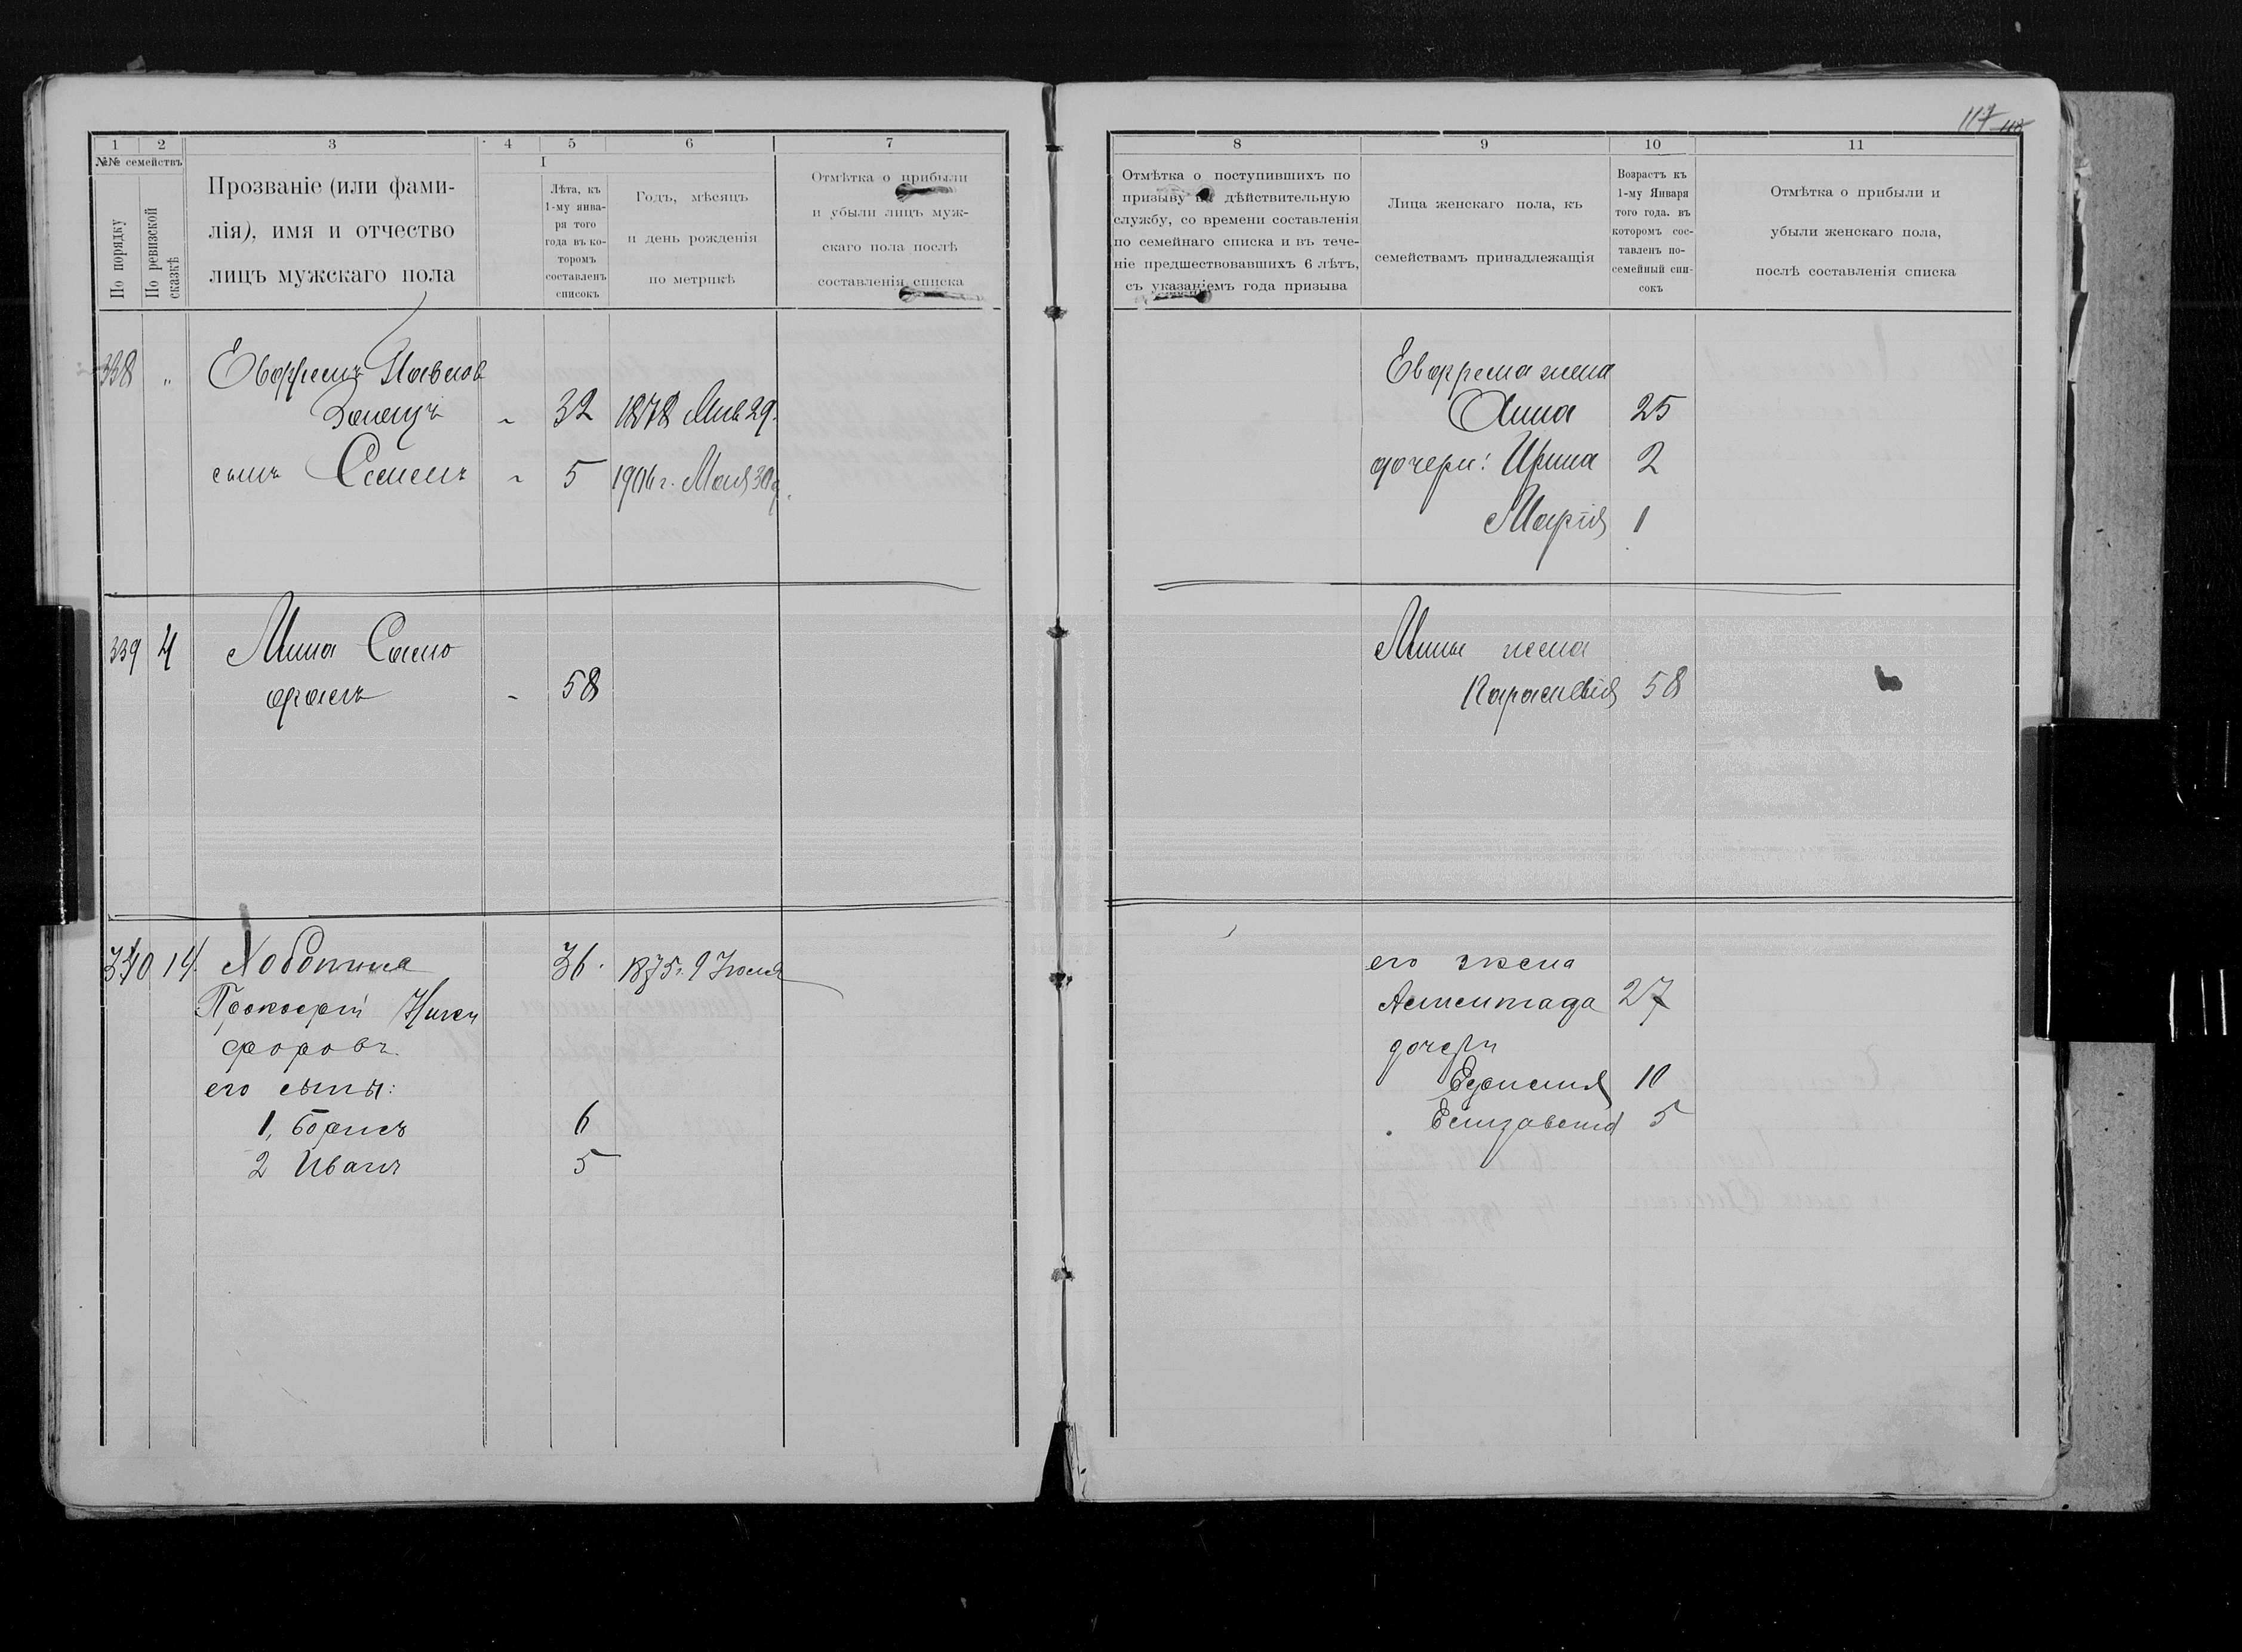 117
1
2
3
4
5
6
7
№№ семействъ
По порядку
По ревизской сказкѣ
Прозваніе (или фами-
лія), имя и отчество
лицъ мужскаго пола
I
Лѣта, къ
1-му янва-
ря того
года въ ко-
торомъ
составленъ
списокъ
Годъ, мѣсяцъ
и день рожденія
по метрикѣ
Отмѣтка о прибыли
и убыли лицъ муж-
скаго пола послѣ
составленія списка
338 „ Павлов
32 1878 Янв 29.
сынъ Семенъ 5 1906 г. Мая 30
339 4 Мина
58
340 14. 36. 1875 г. 9
Прокофій Ники
форовъ.
его сыны:
1, Борисъ 6
2 Иванъ 5
8
9
10
11
Отмѣтка о поступившихъ по
призыву на дѣйствительную
службу, со времени составленія
по семейнаго списка и въ тече-
ніе предшествовавшихъ 6 лѣтъ,
съ указаніемъ года призыва
Лица женскаго пола, къ
семействамъ принадлежащія
Возрастъ къ
1-му Января
того года. въ
котором сос-
тавленъ по-
семейный спи-
сокъ
Отмѣтка о прибыли и
убыли женскаго пола,
послѣ составленія списка
жена
Анна 25
дочери: Ирина 2
Марія 1
Мины жена
Параскевія 58
его жена
27
дочери
10
Елизавета 5